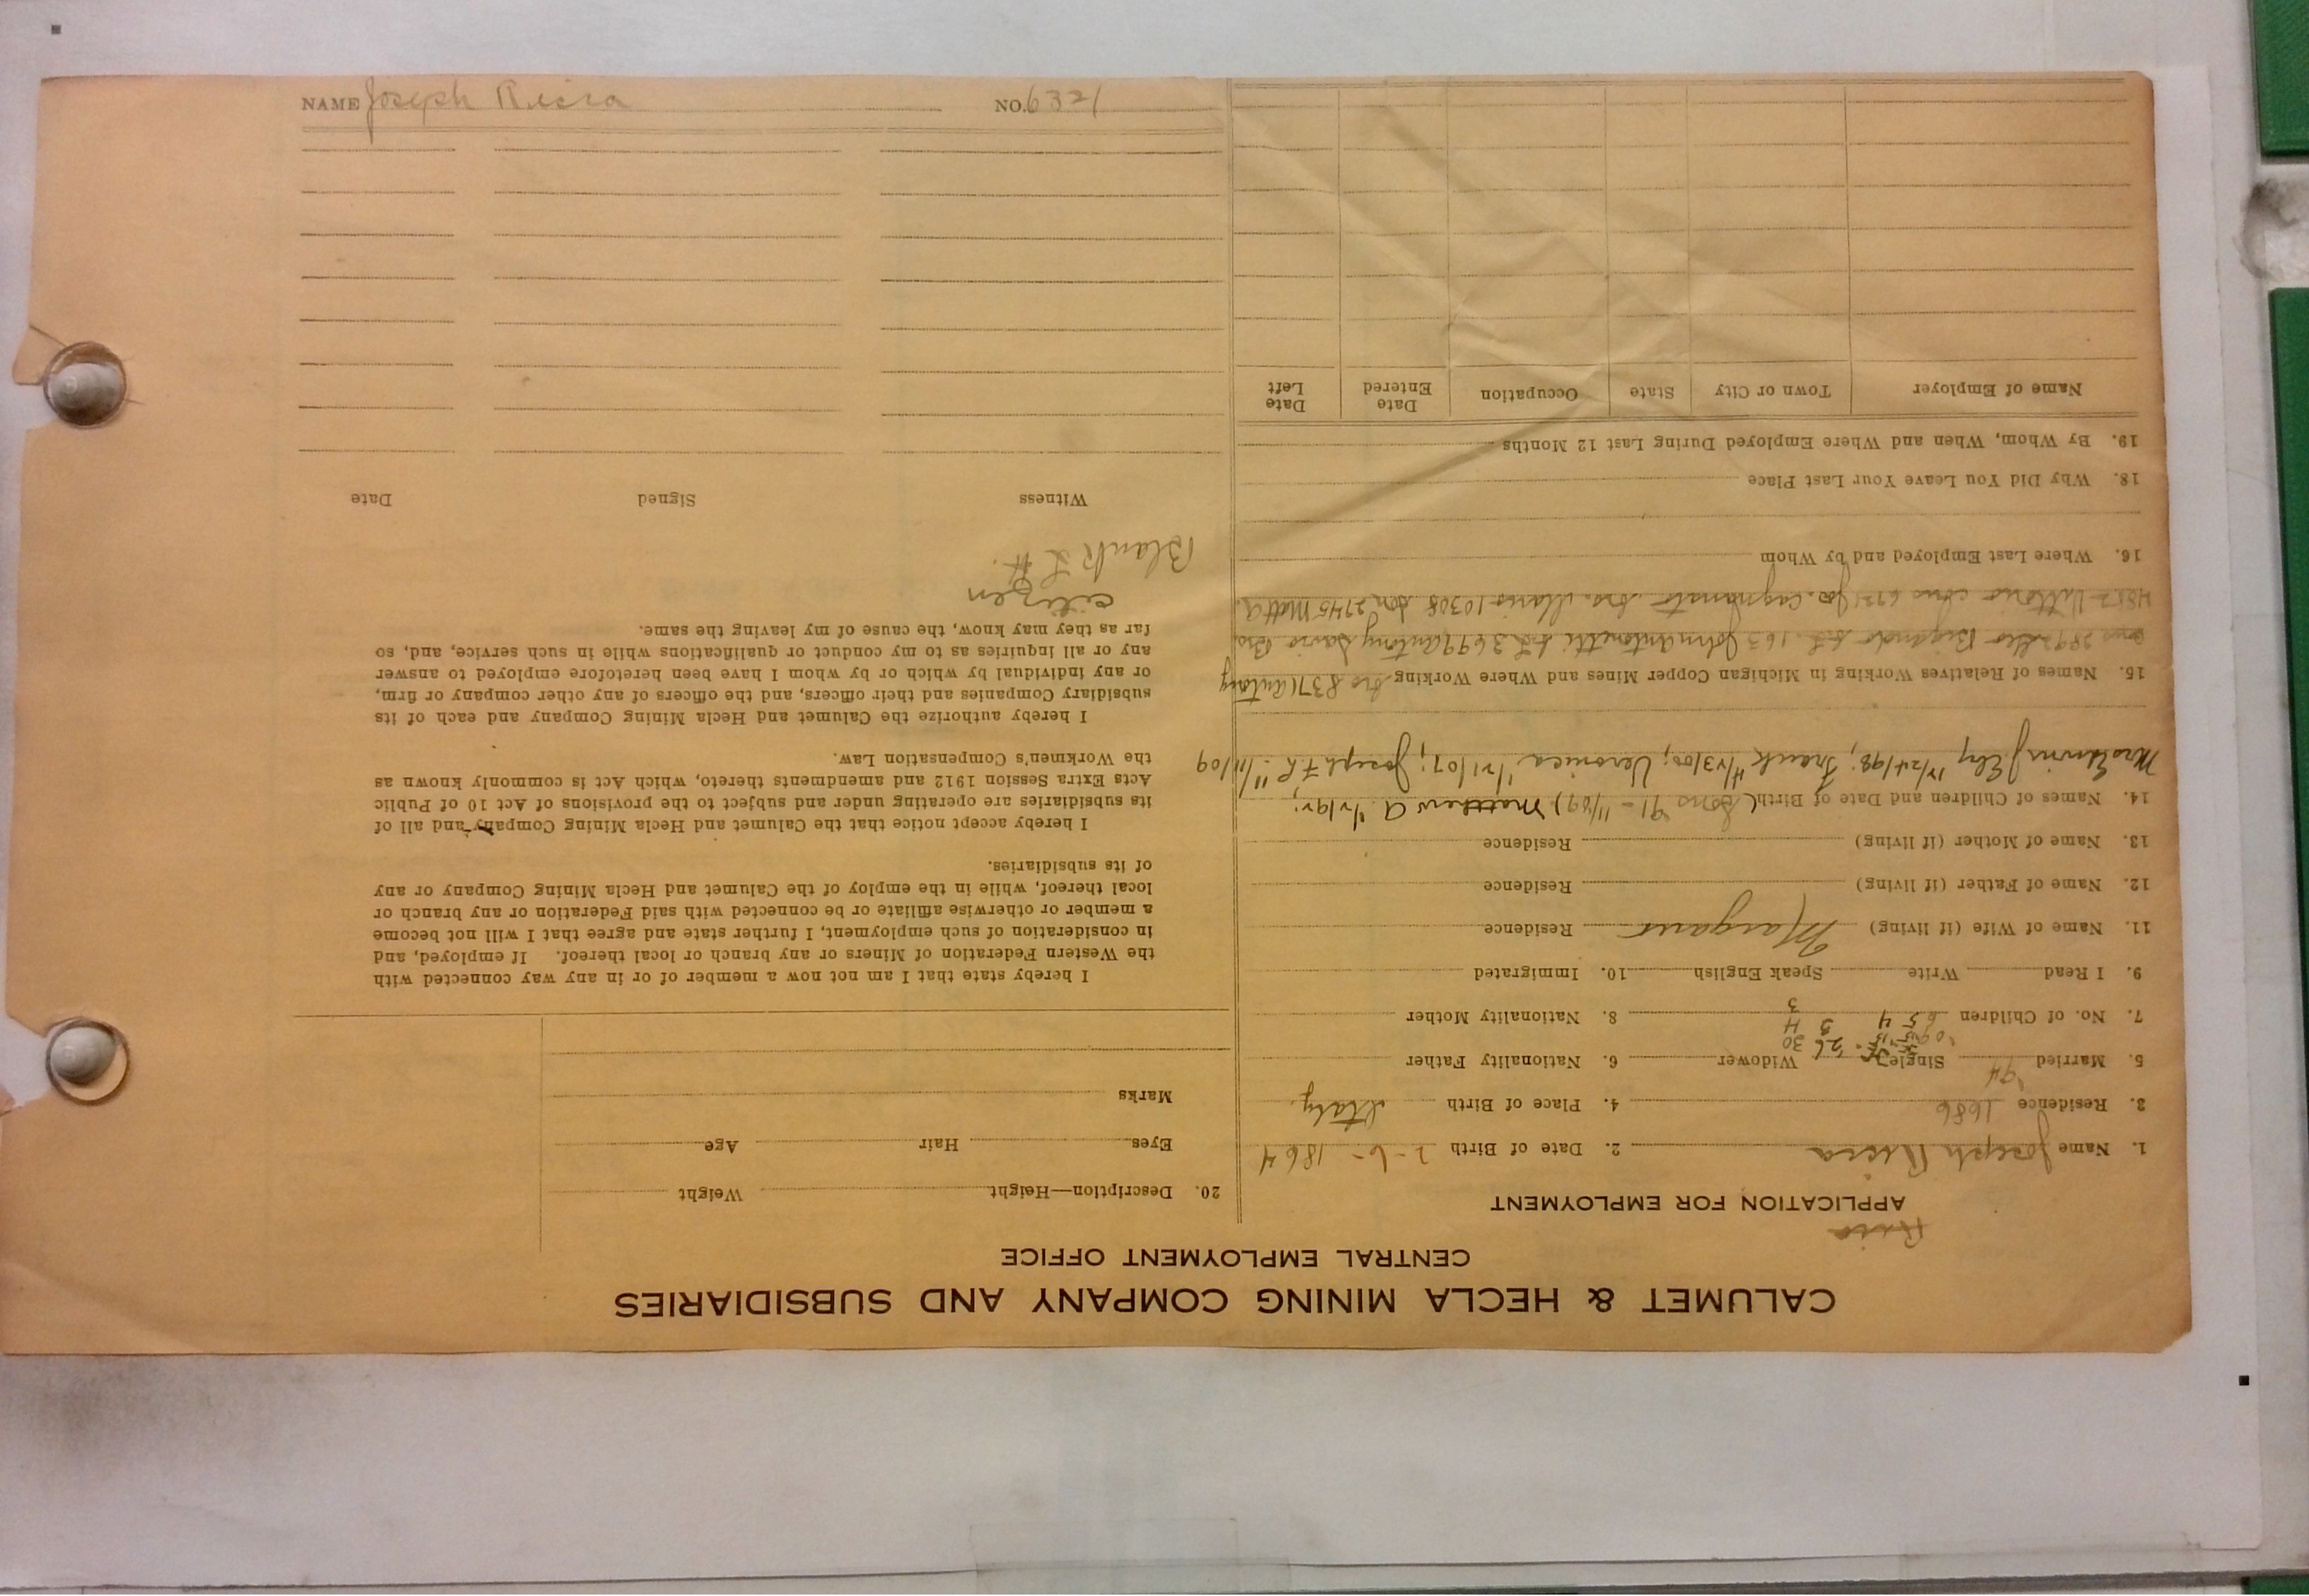 CALUMET & HECLA MINING COMPANY AND SUBSIDIARIES
CENTRAL EMPLOYMENT OFFICE
APPLICATION FOR EMPLOYMENT
1. Name Joseph 2. Date of Birth 2-6-1864
3. Residence 1686 4. Place of Birth Italy
5. Married '94 Single Widower 6. Nationality Father
7. No. of Children 8. Nationality Mother
9. I Read Write Speak English 10. Immigrated
11. Name of Wife (if living) Residence
12. Name of Father (if living) Residence
13. Name of Mother (if living) Residence
14. Names of Children and Date of Birth Matthew A.
Frank 4/23/00; Veronica 1/21/07; Joseph
15. Names of Relatives Working in Michigan Copper Mines and Where Working Bro 8371 Antony
John Antonetti 3699 Antony Bro.
Bro. Mario 10308 Son 2745 Matt A.
16. Where Last Employed and by Whom
18. Why Did You Leave Your Last Place
19. By Whom, When and Where Employed During Last 12 Months
Name of Employer Town or City State Occupation Date Entered Date Left
20. Description—Height Weight
Eyes Hair Age
Marks
I hereby state that I am not now a member of or in any way connected with
the Western Federation of Miners or any branch or local thereof. If employed, and
in consideration of such employment, I further state and agree that I will not become
a member or otherwise affiliate or be connected with said Federation or any branch or
local thereof, while in the employ of the Calumet and Hecla Mining Company or any
of its subsidiaries.
I hereby accept notice that the Calumet and Hecla Mining Company and all of
its subsidiaries are operating under and subject to the provisions of Act 10 of Public
Acts Extra Session 1912 and amendments thereto, which Act is commonly known as
the Workmen's Compensation Law.
I hereby authorize the Calumet and Hecla Mining Company and each of its
subsidiary Companies and their officers, and the officers of any other company or firm,
or any individual by which or by whom I have been heretofore employed to answer
any or all inquiries as to my conduct or qualifications while in such service, and, so
far as they may know, the cause of my leaving the same.
citizen
Blank
Witness Signed Date
NAME Joseph NO. 6321